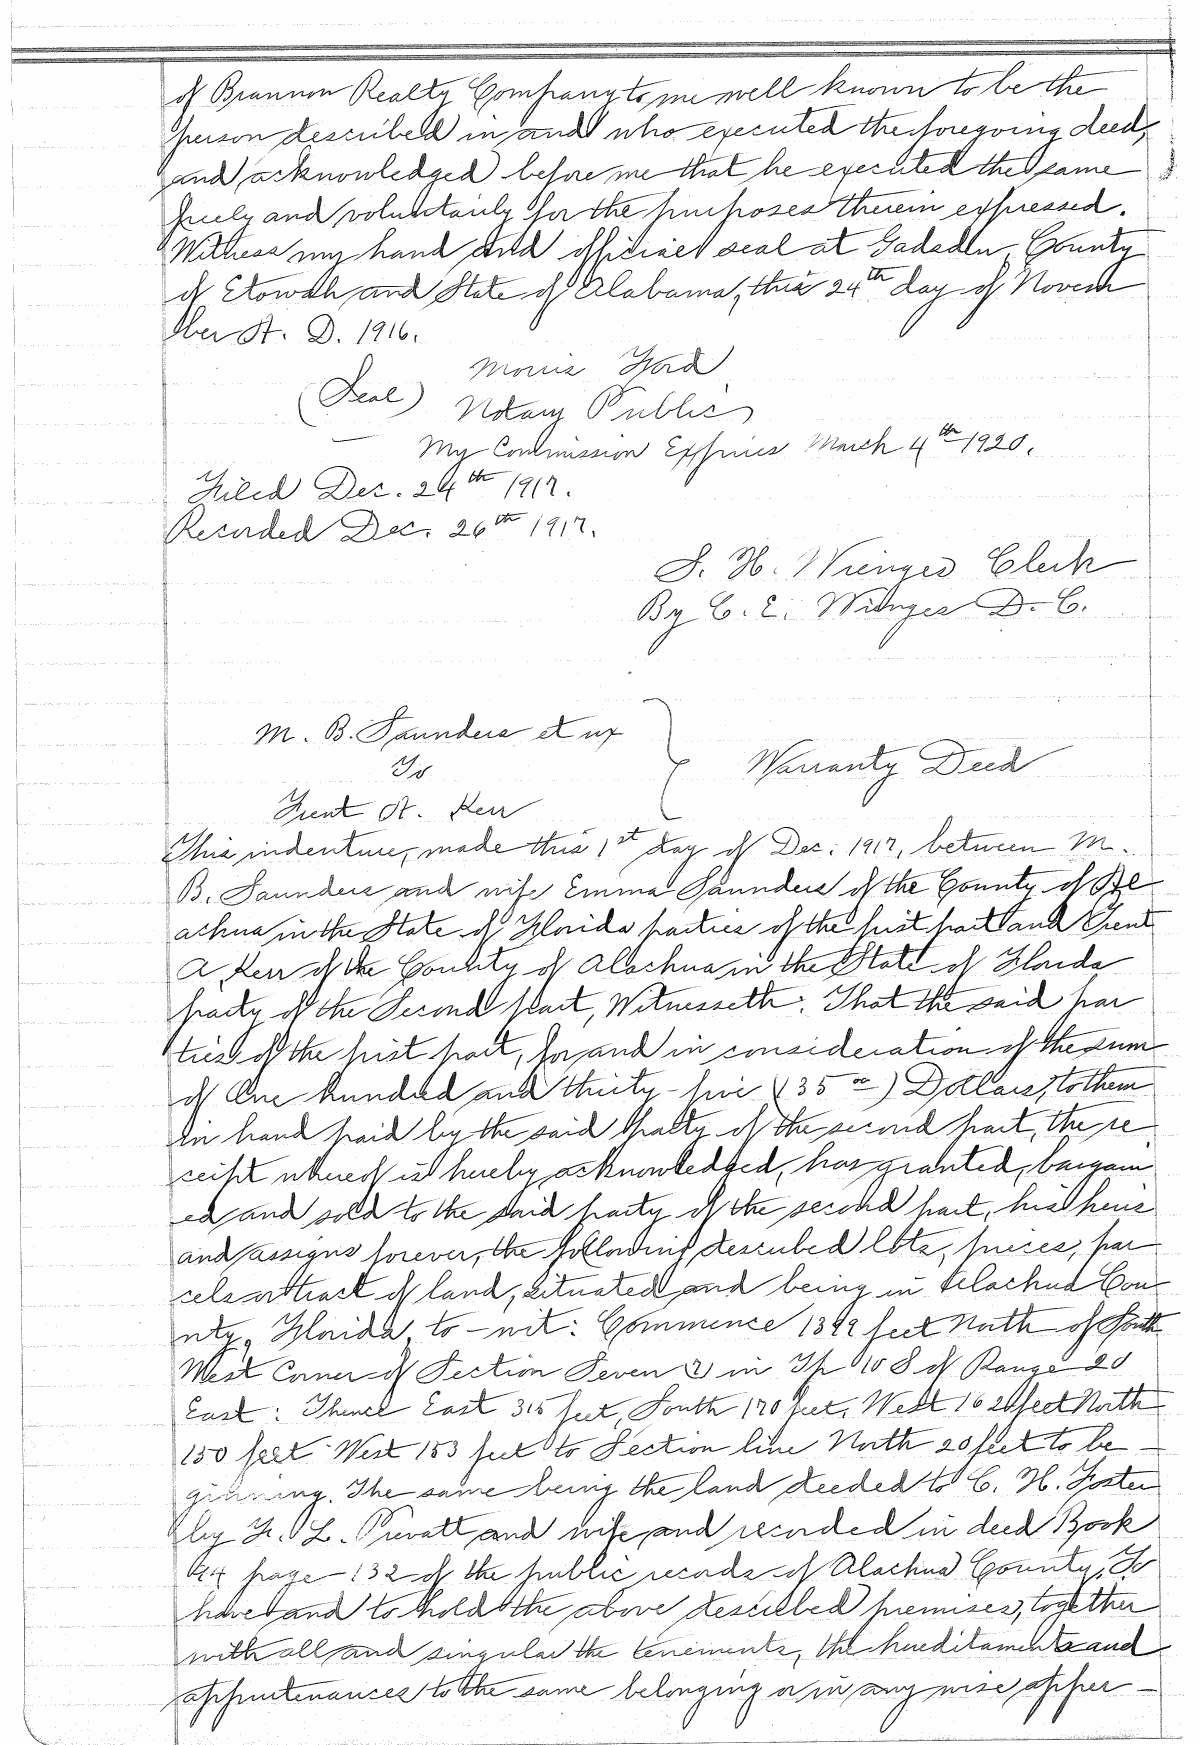 of Brannon Realty Company to me well known to be the
person described in and who executed the foregoing deed,
and acknowledged before me that he executed the same
freely and voluntarily for the purposes therein expressed.
Witness my hand and official seal at Gadsden, County
of Etowah and State of Alabama, this 24th day of Novem
ber A. D. 1916.
Morris Ford
(Seal) Notary Public
My Commission Expires March 4th 1920.
Filed Dec. 24th 1917.
Recorded Dec. 26th 1917.
S. H. Wienges Clerk
By C. E. Wienges D. C.
M. B. Saunders et ux
To
Warranty Deed
Trent A. Kerr
This indenture, made this 1st day of Dec. 1917, between M.
B. Saunders and wife Emma Saunders of the County of Al
achua in the State of Florida parties of the first part and Trent
A Kerr of the County of Alachua in the State of Florida
party of the Second part, Witnesseth: That the said par
ties of the first part, for and in consideration of the sum
of One hundred and thirty-five (35 00) Dollars, to them
in hand paid by the said party of the second part, the re
ceipt whereof is hereby acknowledged, has granted, bargain
ed and sold to the said party of the second part, his heirs
and assigns forever, the following described lots, pieces, par
cels or tract of land, situated and being in Alachua Cou-
nty, Florida, to-wit: Commence feet North of South
West Corner of Section Seven (7) in Tp 10 S of Range 20
East: Thence East 315 feet, South 170 feet, West 162 feet North
150 feet West 153 feet to Section line North 20 feet to be-
ginning. The same being the land deeded to C. H. Foster
by F. L. Prevatt and wife and recorded in deed Book
94 page 132 of the public records of Alachua County, To
have and to hold the above described premises, together
with all and singular the tenements, the hereditaments and
appurtenances to the same belonging or in any wise apper-